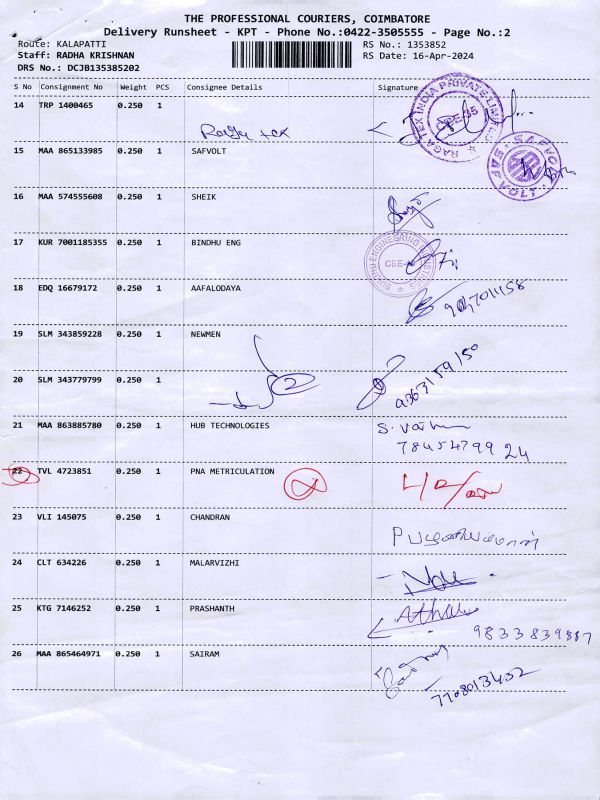 THE PROFESSIONAL COURIERS, COIMBATORE
Delivery Runsheet - KPT - Phone No.:0422-3505555 - Page No.:2
Route: KALAPATTI RS No.: 1353852
Staff: RADHA KRISHNAN RS Date: 16-Apr-2024
DRS No.: DCJB135385202
S No Consignment No Weight PCS Consignee Details Signature
14 TRP 1400465 0.250 1
Raga tex
RAGA TEX INDIA PRIVATE LIMITED
15 MAA 865133985 0.250 1 SAFVOLT
SAFVOLT SAFVOLT
16 MAA 574555608 0.250 1 SHEIK
17 KUR 7001185355 0.250 1 BINDHU ENG
BINDHU ENGINEERING INDUSTRIES
CBE
18 EDQ 16679172 0.250 1 AAFALODAYA
19 SLM 343859228 0.250 1 NEWMEN
20 SLM 343779799 0.250 1
2
21 MAA 863885780 0.250 1 HUB TECHNOLOGIES
7845479924
22 TVL 4723851 0.250 1 PNA METRICULATION
23 VLI 145075 0.250 1 CHANDRAN
24 CLT 634226 0.250 1 MALARVIZHI
25 KTG 7146252 0.250 1 PRASHANTH
26 MAA 865464971 0.250 1 SAIRAM
7708013432